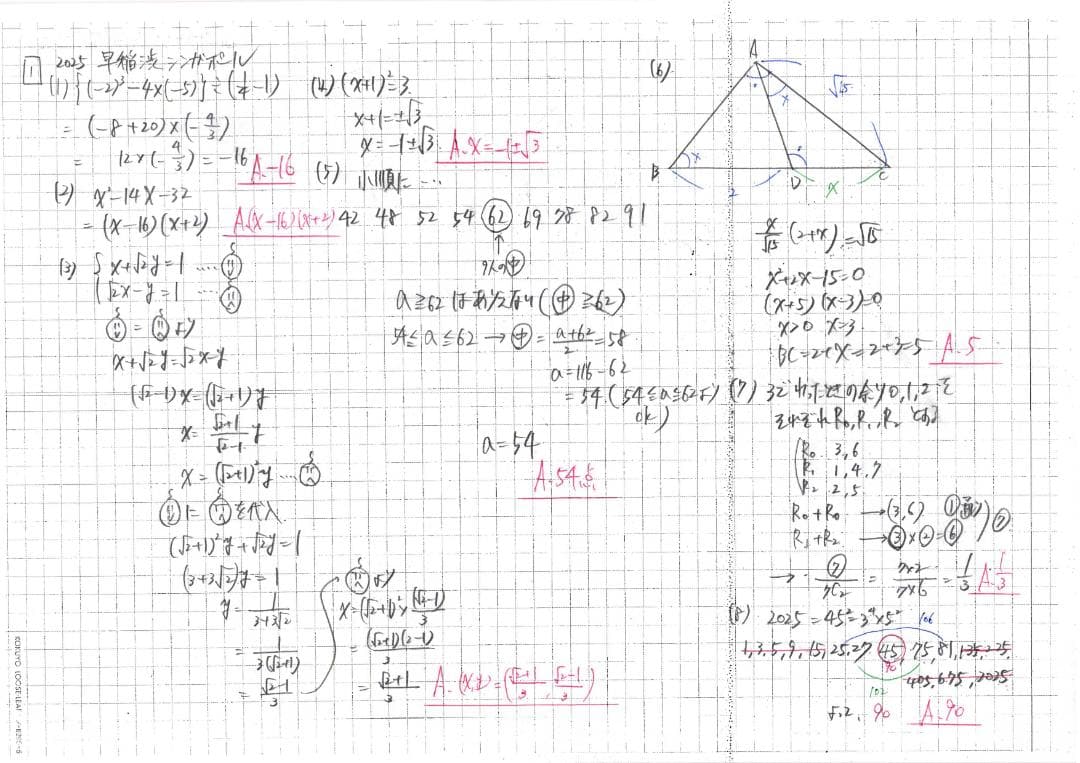 1 2025 早稲渋シンガポール
(1) {(-2)³-4×(-5)}÷(1/4-1)
= (-8+20)×(-4/3)
= 12×(-4/3)=-16 A.-16
(2) x²-14x-32
= (x-16)(x+2) A.(x-16)(x+2)
(3) { x+√2y=1 ....
√2x-y=1 ....
= より
x+√2y=√2x-y
(√2-1)x=(√2+1)y
x=(√2+1)/(√2-1)y
x=(√2+1)²y ...
に を代入
(√2+1)²y+√2y=1
(3+3√2)y=1
y=1/(3+3√2)
=1/3(√2+1)
=(√2-1)/3
より
x=(√2+1)²×(√2-1)/3
=(√2+1)(2-1)/3
=(√2+1)/3 A.(x,y)=((√2+1)/3, (√2-1)/3)
(4) (x+1)²=3
x+1=±√3
x=-1±√3 A.x=-1±√3
(5) 小順に…
42 48 52 54 62 69 78 82 91
↑
9人の中
a≧62はありえない(中≧62)
54≦a≦62→中=(a+62)/2=58
a=116-62
=54(54≦a≦62よりok)
a=54
A.54点
(6)
A
√15
x
B
x
2
D
x
C
x/√15(2+x)=√15
x²+2x-15=0
(x+5)(x-3)=0
x>0 x=3
BC=2+x=2+3=5 A.5
(7) 3でわった時の余り0,1,2を
それぞれR₀,R₁,R₂とする
R₀ 3,6
R₁ 1,4,7
R₂ 2,5
R₀+R₀ →(3,6) ①通り
R₁+R₂ →③×②=⑥
⑦
→ ⑦/₇C₂ = 7×2/7×6=1/3 A.1/3
(8) 2025=45²=3⁴×5²
106
1,3,5,9,15,25,27,45,75,81,135,225,
90
405,675,2025
102
よって、90 A.90
KOKUYO LOOSE-LEAF